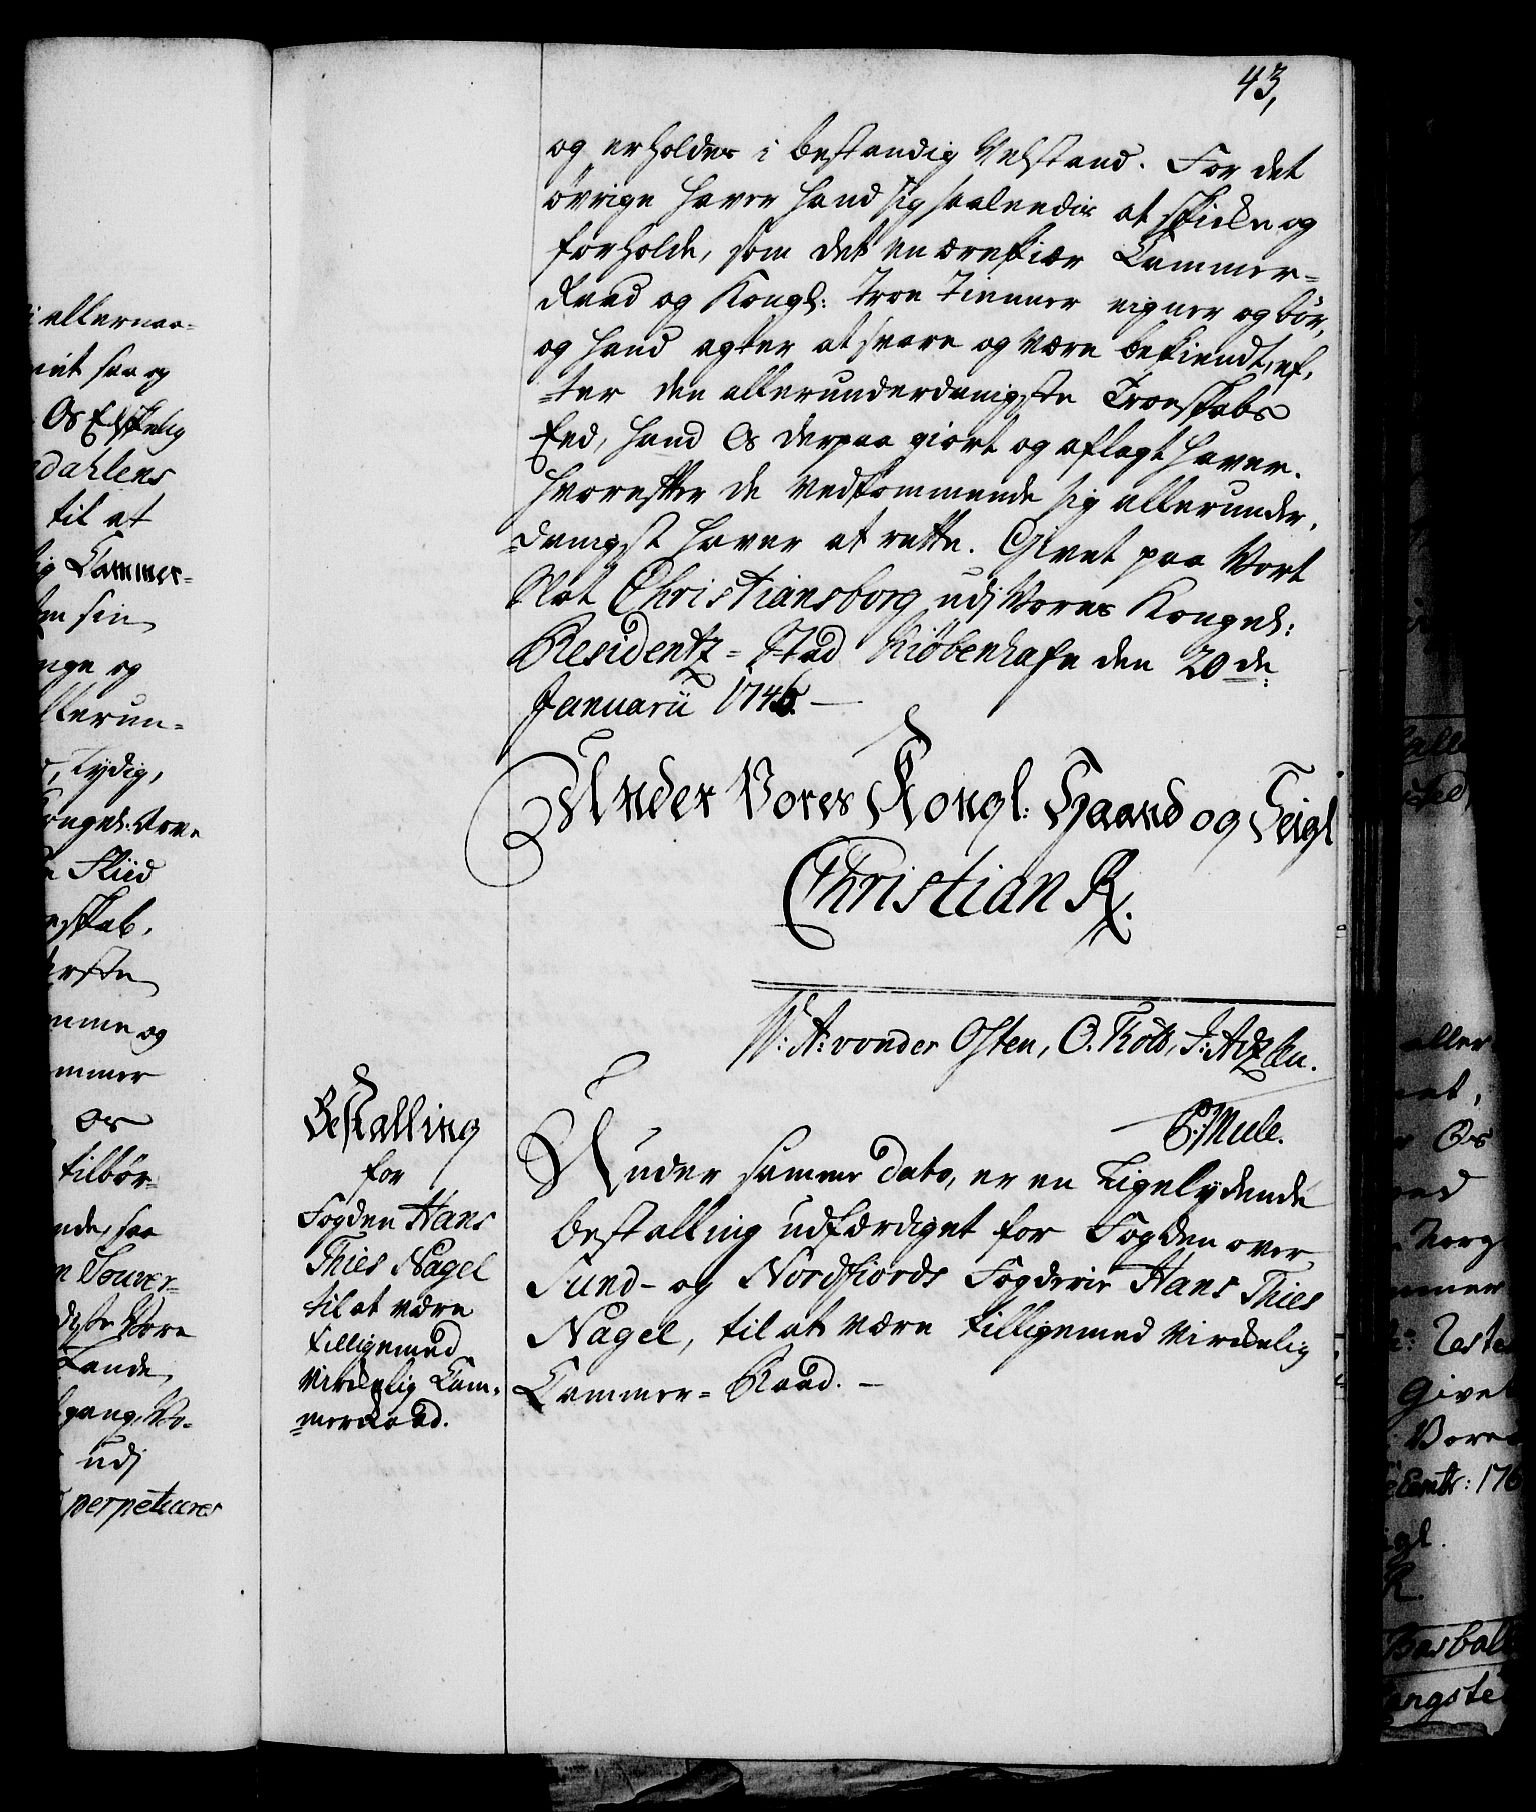 43,
og erholdes i bestandig Velstand. For det
övrige haver hand sig saaleedis at skicke og
forholde, som det en ærekiær Cammer=
Raad og Kongl: Troe Tienner eigner og bör,
og hand agter at svare og være bekiendt, ef,
=ter den allerunderdanigste Troeskabs
Eed, hand Os derpaa giort og aflagt haver.
Hvorefter de Vedkommende sig allerunder,
=danigst haver at rette. Givet paa Vort
Slot Christiansborg udj Vores Kongel:
Residentz=Stad Kiöbenhafn den 20de
Januarii 1746. —
Under Vores Kongl: Haand og Seigl
Christian R.
W: A: vonder Osten, O. Thott, J:
P: Mule.
Bestalling
for
Fogden Hans
Thies Nagel
til at være
tilligemed
Virckelig Cam,
=merRaad.
Under samme dato, er en Ligelydende
bestalling udfærdiget for Fogden over
Sund- og Nordfiords Fogderie Hans Thies
Nagel, til at være tilligemed virckelig
Cammer=Raad. —
allernaa=
saa og
Os Elskelig
dahlens
til at
Cammer=
sin
og
Tydig,
Fliid
og
Os
tilbör=
saa
Souver=
Vore
Lande,
udj
perpetueres
aller
Os
Norg
Givet
Vores